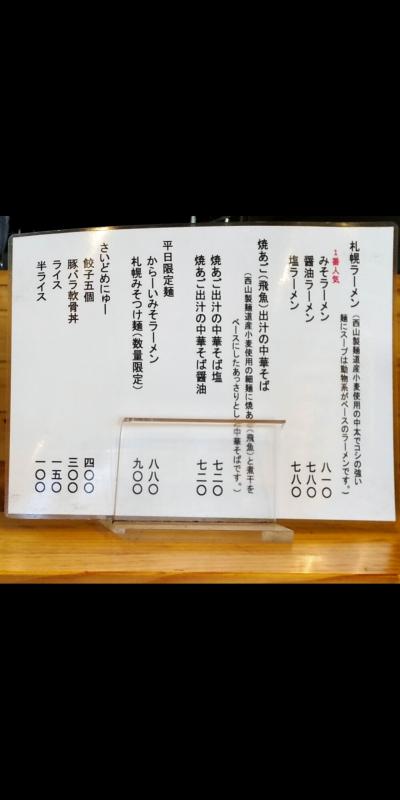 札幌ラーメン（西山製麺道産小麦使用の中太でコシの強い
麺にスープは動物系がベースのラーメンです。）
1番人気
みそラーメン 八一〇
醤油ラーメン 七八〇
塩ラーメン 七八〇
焼あご（飛魚）出汁の中華そば
（西山製麺道産小麦使用の細麺に焼あご（飛魚）と煮干を
ベースにしたあっさりとした中華そばです。）
焼あご出汁の中華そば塩 七二〇
焼あご出汁の中華そば醤油 七二〇
平日限定麺
からーいみそラーメン 八八〇
札幌みそつけ麺（数量限定） 九〇〇
さいどめにゅー
餃子五個 四〇〇
豚バラ軟骨丼 三〇〇
ライス 一五〇
半ライス 一〇〇